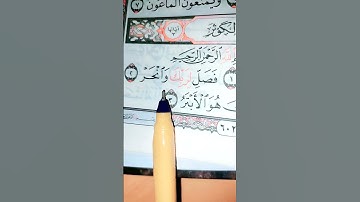 وَيَمْنَعُونَ ٱلْمَاعُونَ ٧
ٱلْكَوْثَرِ
ٱلرَّحْمَٰنِ ٱلرَّحِيمِ
١ فَصَلِّ لِرَبِّكَ وَٱنْحَرْ ٢
هُوَ ٱلْأَبْتَرُ ٣
٦٠٢